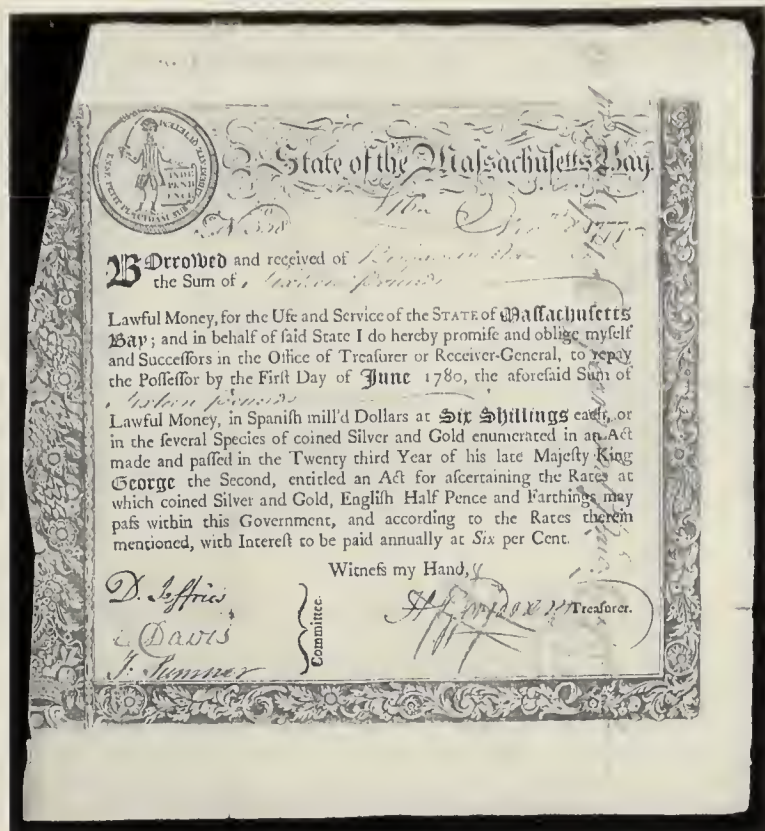 ENSE PETIT PLACIDAM SUB LIBERTATE QUIETEM
INDE
PEND
ENCE
State of the Maſſachuſetts Bay.
BOrrowed and received of
the Sum of Sixteen pounds
Lawful Money, for the Uſe and Service of the STATE of Maſſachuſetts
Bay; and in behalf of ſaid State I do hereby promiſe and oblige myſelf
and Succeſſors in the Office of Treaſurer or Receiver-General, to repay
the Poſſeſſor by the Firſt Day of June 1780, the aforeſaid Sum of
Sixteen pounds
Lawful Money, in Spaniſh mill'd Dollars at Six Shillings each, or
in the ſeveral Species of coined Silver and Gold enumerated in an Act
made and paſſed in the Twenty third Year of his late Majeſty King
George the Second, entitled an Act for aſcertaining the Rates at
which coined Silver and Gold, Engliſh Half Pence and Farthings may
paſs within this Government, and according to the Rates therein
mentioned, with Intereſt to be paid annually at Six per Cent.
Witneſs my Hand,
D. Jeffries
Davis
J. Sumner
Committee.
H Gardner Treaſurer.